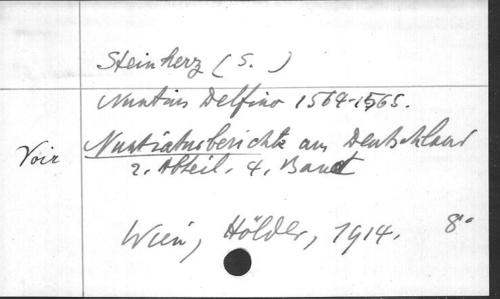 Steinherz (S. )
Nuntius Delfino 1564-1565.
Voir Nuntiaturberichte aus Deutschland
2. Abteil. 4. Band
Wien, Hölder, 1914. 8°